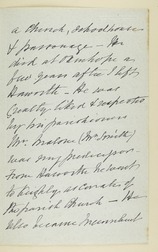 a Church, schoolhouse
& parsonage — He
died at Stanhope a
few years after I left
Haworth — He was
greatly liked & respected
by his parishioners
Mr. Malone (Mr Smith)
was my predecessor
from Haworth he went
to Keighley as curate of
the parish Church — He
also became Incumbent